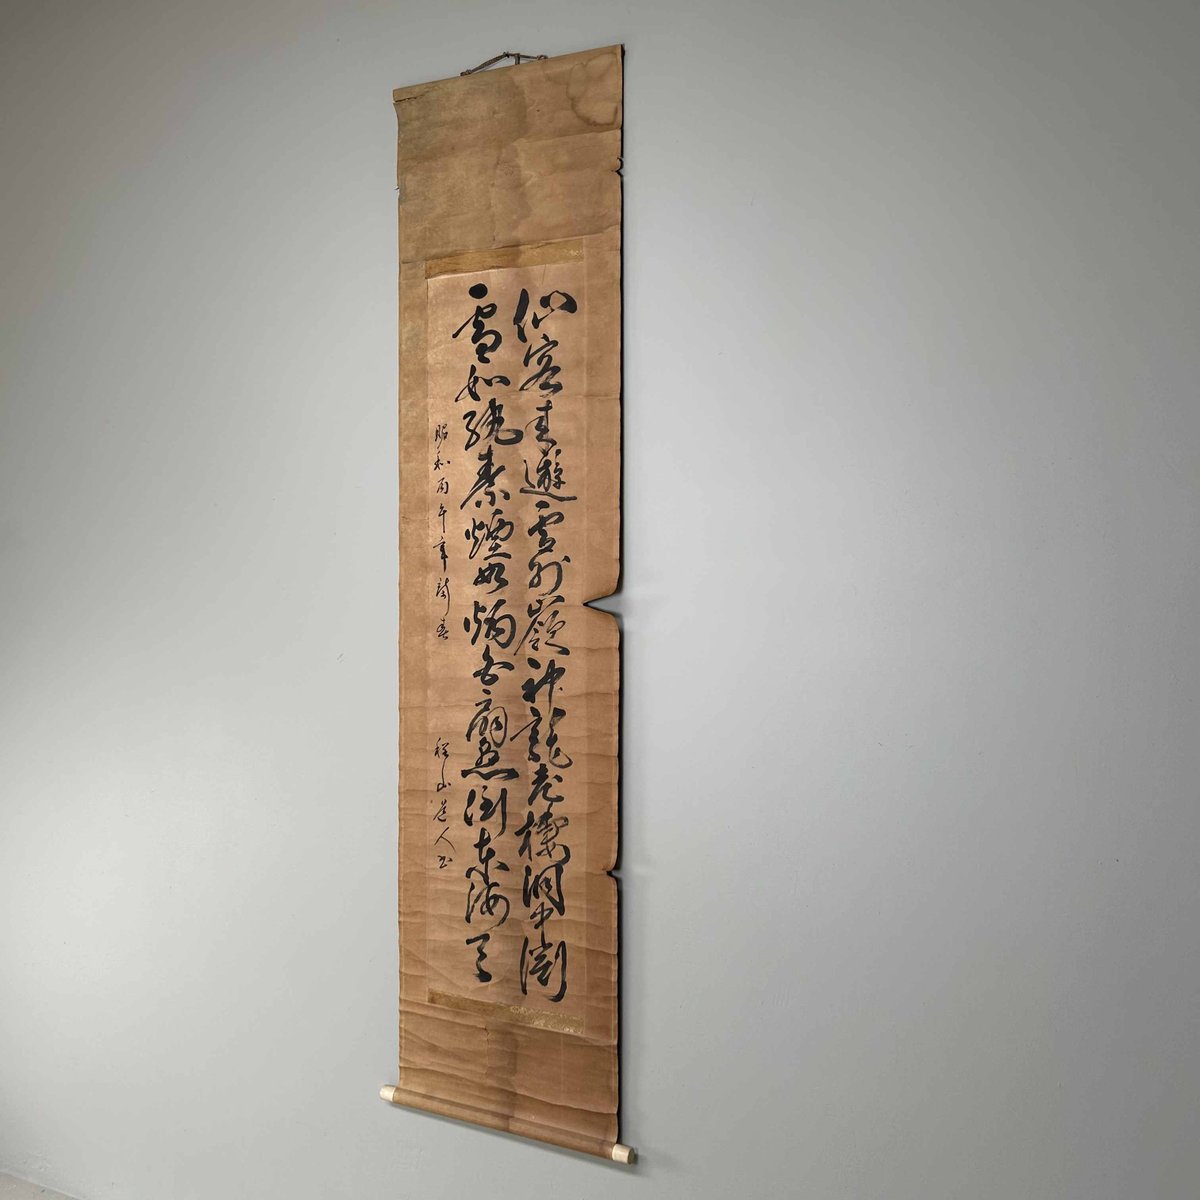 仙客来遊雲外巓神龍老棲洞中淵
雪如紈素煙如柄白扇懸倒東海天
昭和丙午年新春
山道人書